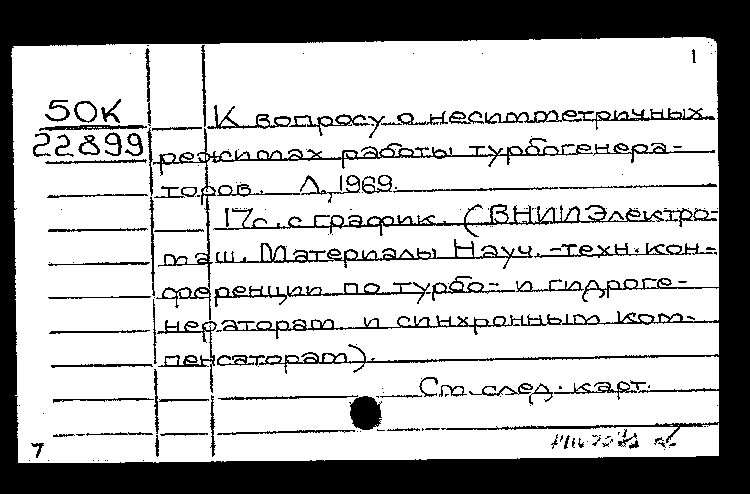 1
50К
22899
К вопросу о несимметричных
режимах работы турбогенера-
торов. Л., 1969.
17с. с график. (ВНИИЭлектро-
маш. Материалы Науч.-техн. кон-
ференции по турбо- и гидроге-
нераторам и синхронным ком-
пенсаторам).
См. след. карт.
7